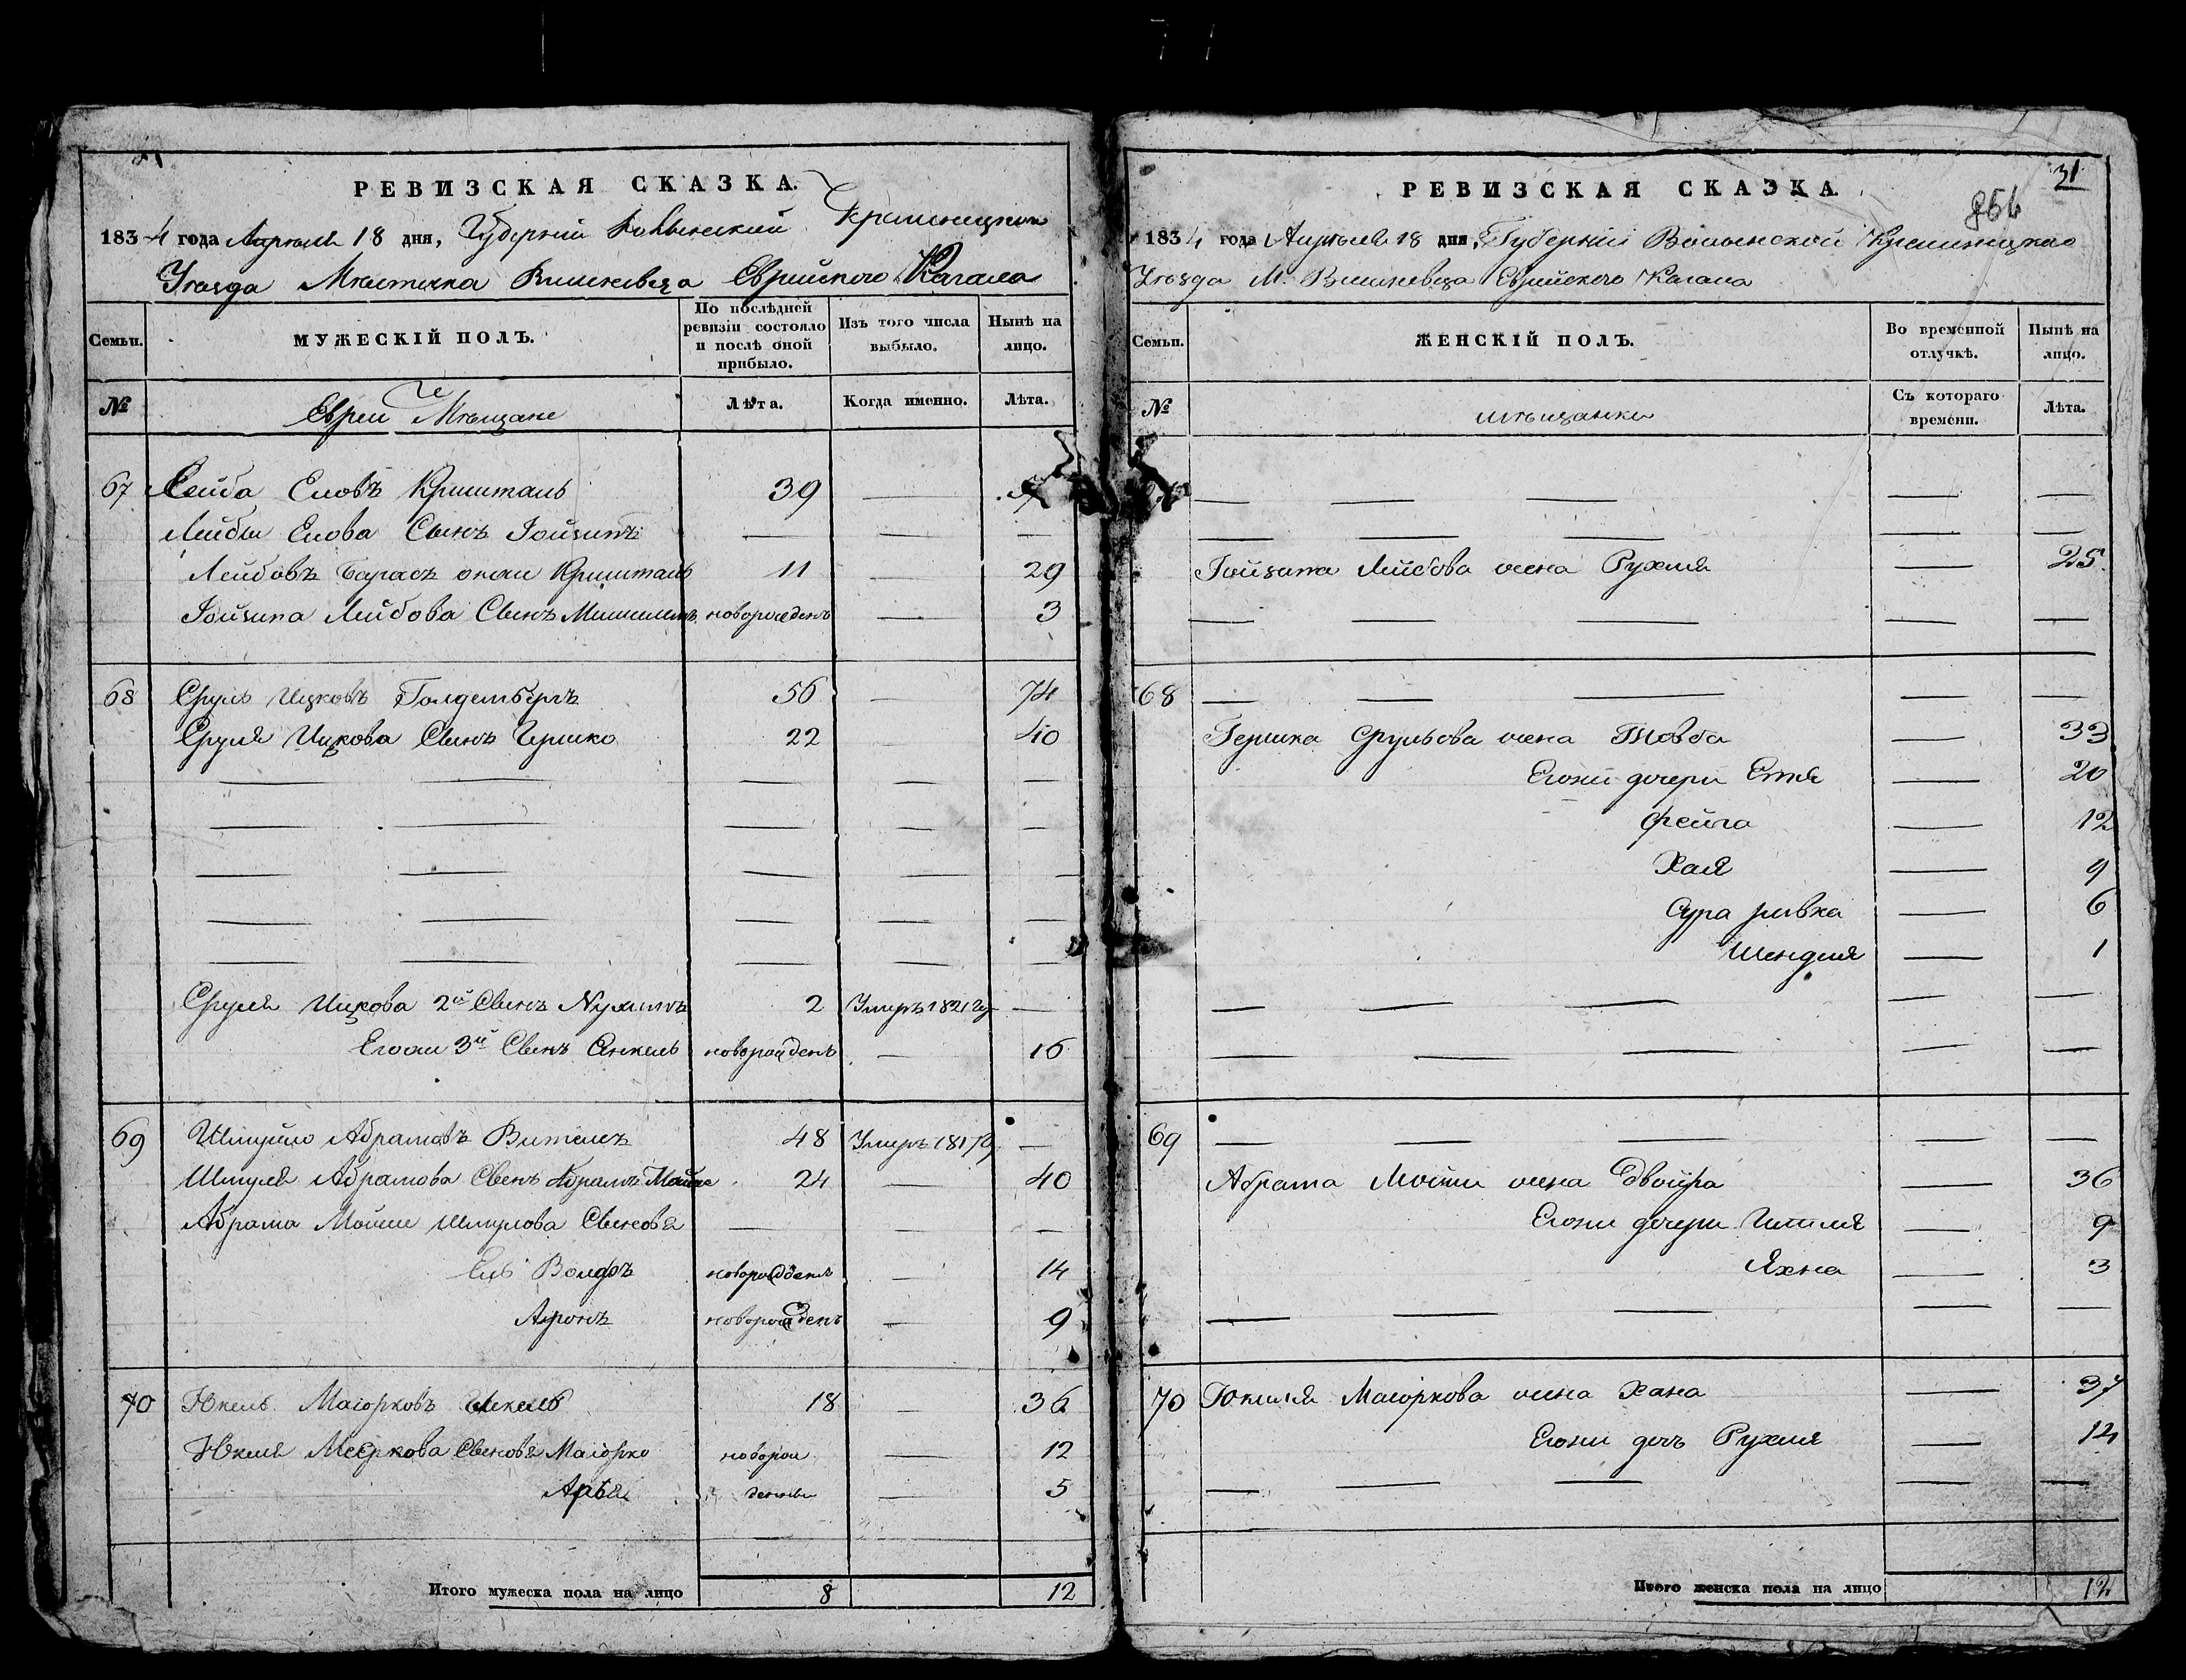 РЕВИЗСКАЯ СКАЗКА.
1834 года Апреля 18 дня, Губерній Волынской Кремницкого
Уезда Мѣстечка Вишневца Еврийского Кагала
Семьи.
МУЖЕСКІЙ ПОЛЪ.
По послѣдней ревизіи состояло и послѣ оной прибыло.
Изъ того числа выбыло.
Нынѣ на лицо.
№
Евреи Мѣщане
Лѣта.
Когда именно.
Лѣта.
67 Лейба Еловъ Кришталь 39 — 
Лейбы Елова Сынъ Іойзипъ — — —
Лейбовъ онже Кришталь 11 — 29
Іойзипа Лейбова Сынъ новорожденъ — 3
68 Сруль Ицковъ Голдемберъ 56 — 74
Сруля Ицкова Сынъ Гершко 22 — 40
— — — — —
— — — — —
— — — — —
— — — — —
— — — — —
Сруля Ицкова 2й Сынъ Нухимъ 2 Умеръ 1821 —
Егоже 3й Сынъ Янкель новорожденъ — 16
69 Шмуйло Абрамовъ Вителъ 48 Умеръ 1817 —
Шмуля Абрамова Сынъ Абрамъ Мошко 24 — 40
Абрама Мошки Шмулова Сыновья — — —
Ель Волфъ новорожденъ — 14
Аронъ новорожденъ — 9
70 Юкель Маіорковъ 18 — 36
Юкеля Мееркова Сыновья Маіорко новорож — 12
Арья денны — 5
—
Итого мужеска пола на лицо 8 12
31
РЕВИЗСКАЯ СКАЗКА
1834 года Апрѣля 18 дня, Губерніи Волынской Кременицкаго
Уѣзда М. Вишневца Еврейского Кагала
Семьи.
ЖЕНСКІЙ ПОЛЪ.
Во временной отлучкѣ.
Нынѣ на лицо.
№
мѣщанки
Съ котораго времени.
Лѣта.
— — — — —
— — — — —
Іойзипа Лейбова жена Рухля — 25
— — — — —
68 — — — — —
Гершка Срульова жена Товба — 33
Егожи дочери Етя — 20
Фейга — 12
Хая — 9
Сура ривка — 6
Шендля — 1
— — — — —
— — — — —
69 — — — — —
Абрама Мошки жена Двойра — 36
Егожи дочери Гитля — 9
Яхна — 3
— — — — —
70 Юкиля Маіоркова жена Хана — 37
Егожи дочь Рухля — 14
— — — — —
Итого женска пола на лицо 12